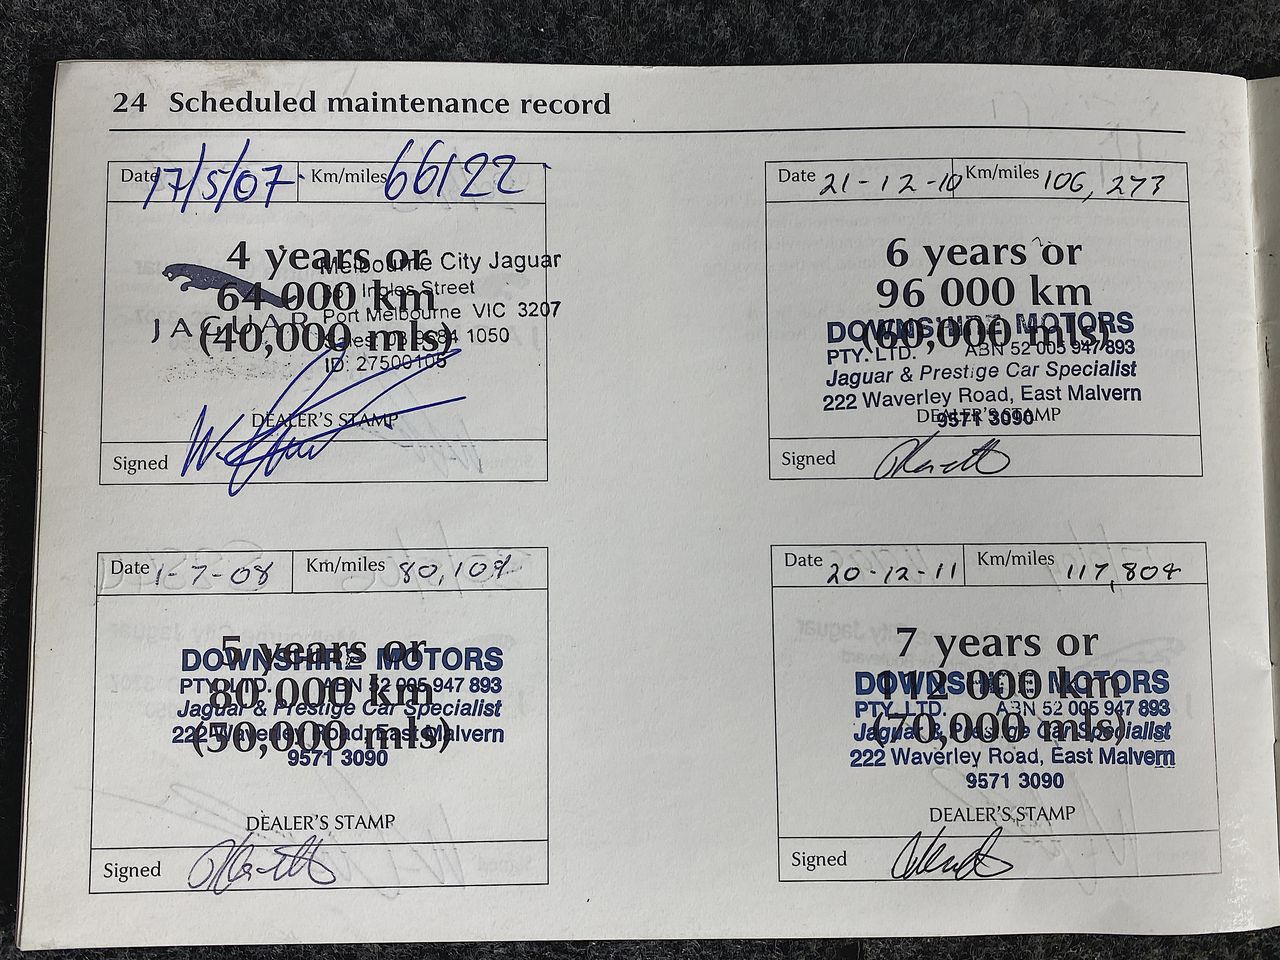 24 Scheduled maintenance record
Date 17/5/07 Km/miles 66122
4 years or
64 000 km
(40,000 mls)
JAGUAR
Melbourne City Jaguar
Ingles Street
Port Melbourne VIC 3207
Sales 1050
ID: 27500105
DEALER'S STAMP
Signed
Date 1-7-08 Km/miles 80,109
5 years or
80 000 km
(50,000 mls)
DOWNSHIRE MOTORS
PTY. LTD. ABN 52 005 947 893
Jaguar & Prestige Car Specialist
222 Waverley Road, East Malvern
9571 3090
DEALER'S STAMP
Signed
Date 21-12-10 Km/miles 106,277
6 years or
96 000 km
(60,000 mls)
DOWNSHIRE MOTORS
PTY. LTD. ABN 52 005 947 893
Jaguar & Prestige Car Specialist
222 Waverley Road, East Malvern
9571 3090
DEALER'S STAMP
Signed
Date 20-12-11 Km/miles 117,804
7 years or
112 000 km
(70,000 mls)
DOWNSHIRE MOTORS
PTY. LTD. ABN 52 005 947 893
Jaguar & Prestige Car Specialist
222 Waverley Road, East Malvern
9571 3090
DEALER'S STAMP
Signed